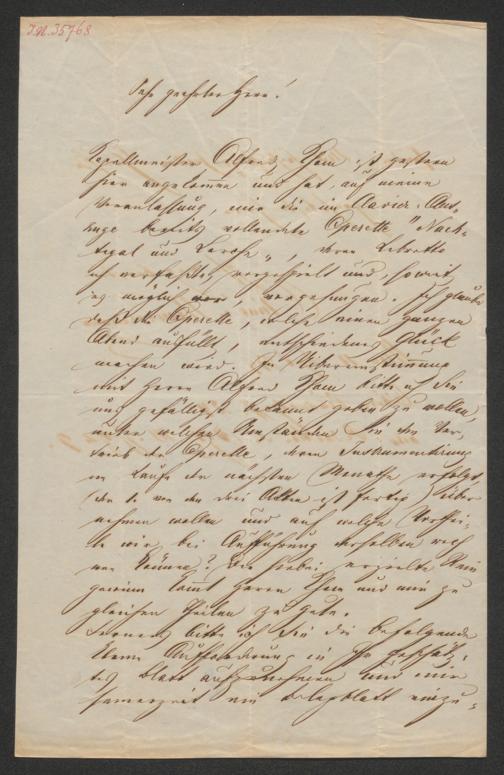 I.N. 35768
Sehr geehrter Herr!
Kapellmeister Alfred Tham ist gestern
hier angekommen und hat, auf meine
Veranlassung, mir die im Clavier-Aus-
zuge bereits vollendete Operette "Nach-
tigal und Lerche", deren Libretto
ich verfaßte, vorgespielt und, soweit
es möglich war, vorgesungen. Ich glaube
daß die Operette, welche einen ganzen
Abend ausfüllt, entschiedenes Glück
machen wird. In Übereinstimmung
mit Herrn Alfred Tham bitte ich Sie
uns gefälligst bekannt geben zu wollen,
unter welchen Umständen Sie den Ver-
trieb der Operette, deren Instrumentirung
im Laufe der nächsten Monathe erfolgt,
(der 1. von den drei Akten ist fertig) über-
nehmen wollen und auf welche Vorthei-
le wir bei Aufführung derselben rech-
nen können? Der hiebei erzielte Rein-
gewinn kömt Herrn Tham und mir zu
gleichen Theilen zu Gute.
Ferner bitte ich Sie die beifolgende
kleine Aufforderung in Ihr geschätz-
tes Blatt aufzunehmen und mir
seinerzeit ein Belegblatt einzu-